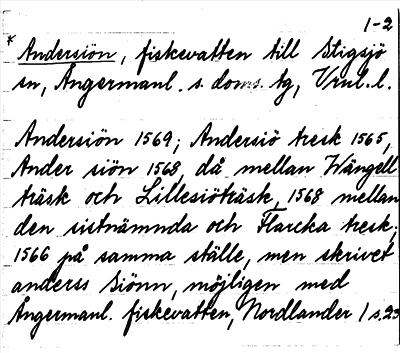 1-2
* Andersiön, fiskevatten till Stigsjö
sn, Ångermanl. s. doms. tg, Vnl. l.
Andersiön 1569; Andersiö tresk 1565,
Ander siön 1568, då mellan Wängell
träsk och Lillesiöträsk, 1568 mellan
den sistnämnda och Flarcka tresk;
1566 på samma ställe, men skrivet
anderss Siönn, möjligen med
Ångermanl. fiskevatten, Nordlander / s. 23